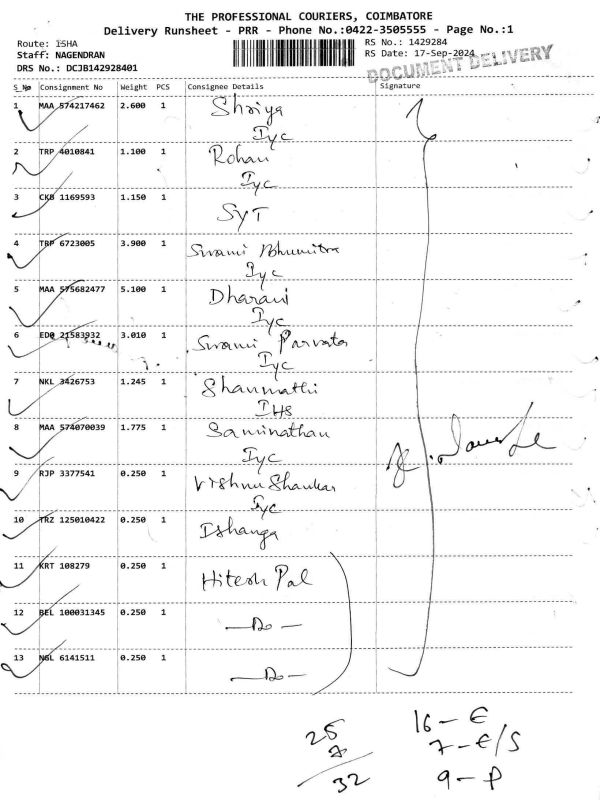 THE PROFESSIONAL COURIERS, COIMBATORE
Delivery Runsheet - PRR - Phone No.:0422-3505555 - Page No.:1
Route: ISHA
RS No.: 1429284
Staff: NAGENDRAN
RS Date: 17-Sep-2024
DRS No.: DCJB142928401
DOCUMENT DELIVERY
S_No Consignment No Weight PCS Consignee Details Signature
1 MAA 574217462 2.600 1 Shriya
Iyc
2 TRP 4010841 1.100 1 Rohan
Iyc
3 CKB 1169593 1.150 1 SYT
4 TRP 6723005 3.900 1 Swami Bhumitra
Iyc
5 MAA 575682477 5.100 1 Dharani
Iyc
6 EDQ 21583932 3.010 1 Swami Parvata
Iyc
7 NKL 3426753 1.245 1 Shanmathi
IHS
8 MAA 574070039 1.775 1 Saminathan
Iyc
9 RJP 3377541 0.250 1 Vishnu Shankar
Iyc
10 TRZ 125010422 0.250 1 Ishanga
11 KRT 108279 0.250 1 Hitesh Pal
12 BEL 100031345 0.250 1 —Do—
13 NGL 6141511 0.250 1 —Do—
25
7
32
16 - E
7 - E/S
9 - P